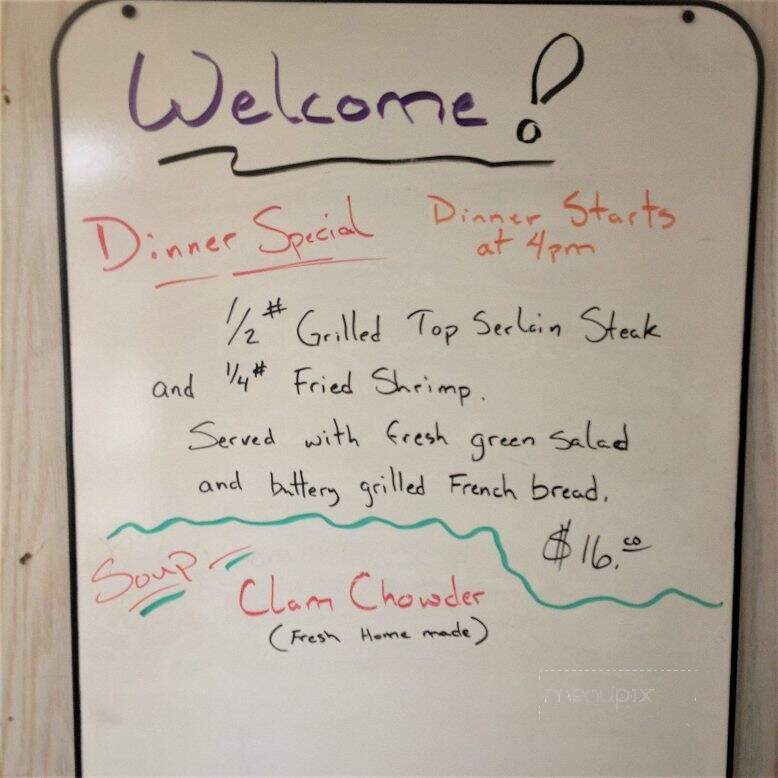 Welcome!
Dinner Special
Dinner Starts
at 4pm
1/2# Grilled Top Serloin Steak
and 1/4# Fried Shrimp.
Served with fresh green salad
and buttery grilled French bread.
$16.00
Soup
Clam Chowder
(Fresh Home made)
menupix